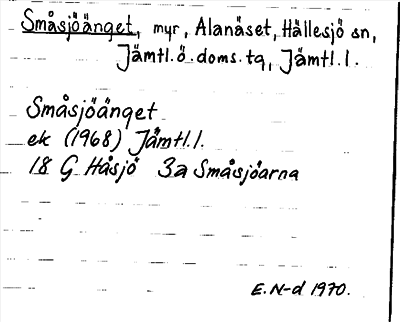 Småsjöänget, myr, Alanäset, Hällesjö sn,
Jämtl.ö.doms.tg, Jämtl.l.
Småsjöänget
ek (1968) Jämtl.l.
18 G Håsjö 3a Småsjöarna
E.N-d 1970.